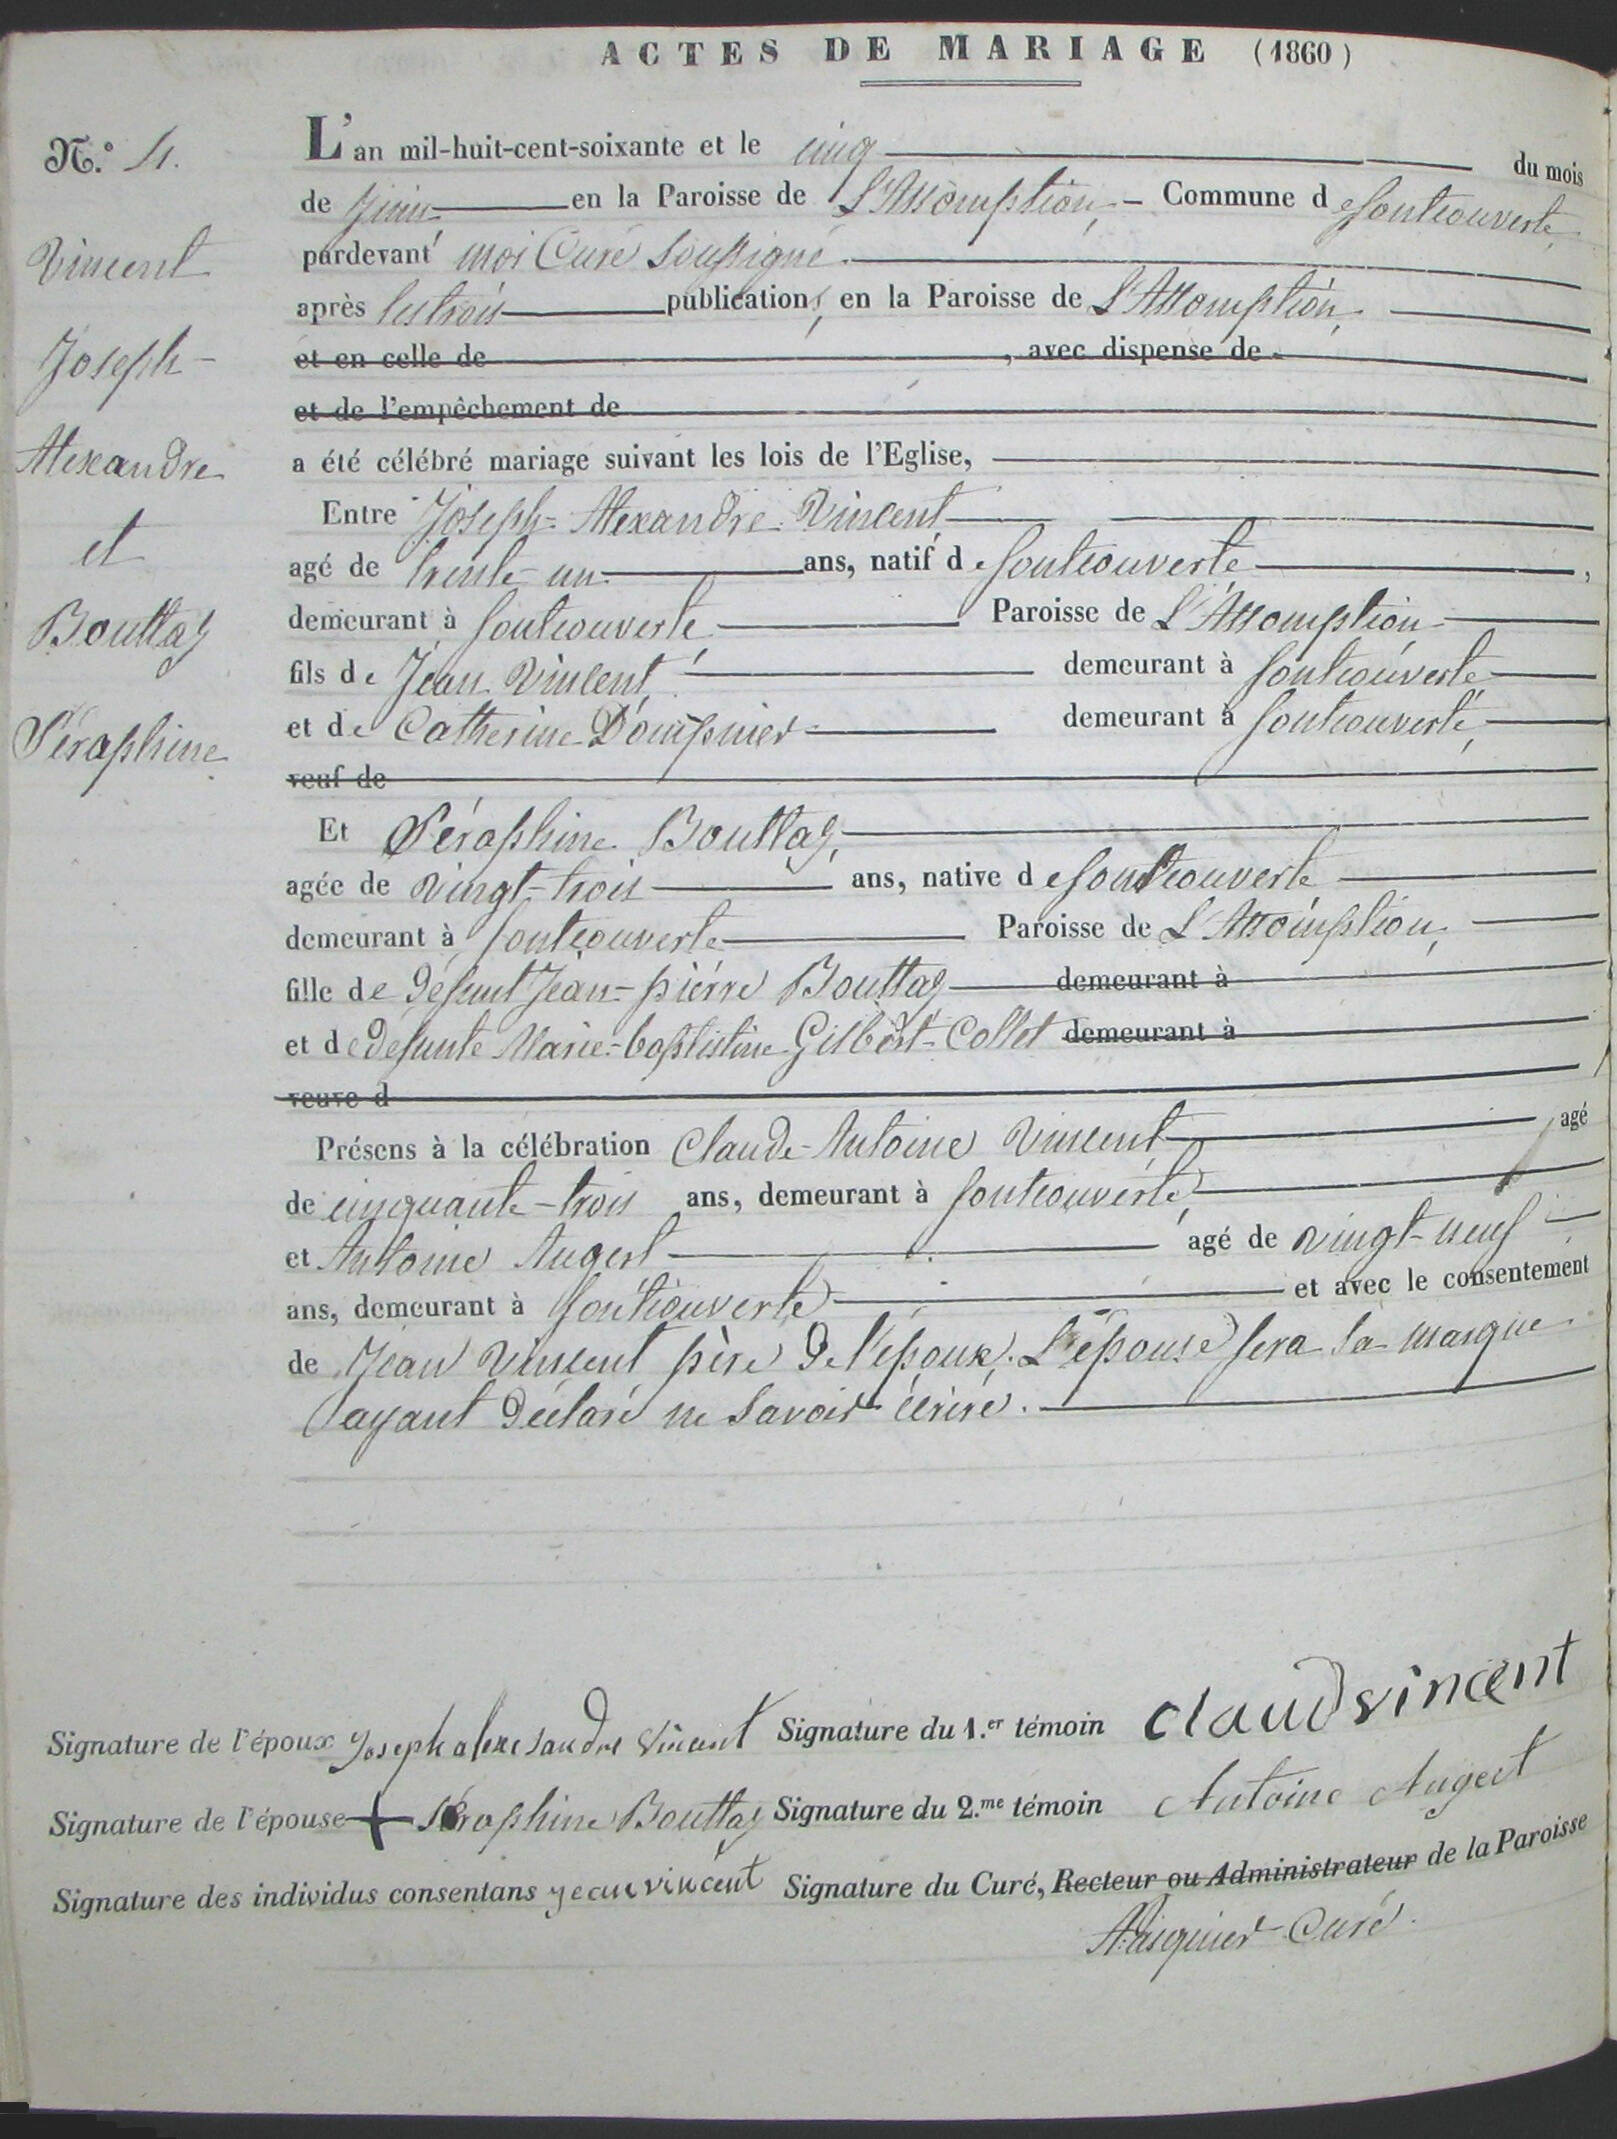 ACTES DE MARIAGE (1860)
N.º 4.
Vincent
Joseph-
Alexandre
et
Bouttaz
Séraphine
L'an mil-huit-cent-soixante et le cinq du mois
de juin en la Paroisse de L'Assomption, - Commune de fontcouverte,
pardevant moi Curé soussigné.
après les trois publications, en la Paroisse de L'Assomption,
et en celle de , avec dispense de
et de l'empêchement de
a été célébré mariage suivant les lois de l'Eglise,
Entre Joseph-Alexandre Vincent
agé de trente-un ans, natif de fontcouverte,
demeurant à fontcouverte, Paroisse de L'Assomption
fils de Jean Vincent, demeurant à fontcouverte
et de Catherine Dompnier demeurant à fontcouverte,
veuf de
Et Séraphine Bouttaz,
agée de vingt-trois ans, native de fontcouverte
demeurant à fontcouverte Paroisse de L'Assomption,
fille de défunt Jean-pierre Bouttaz demeurant à
et de défunte Marie-baptistine Gilbert-Collet demeurant à
veuve d
Présens à la célébration Claude-Antoine Vincent agé
de cinquante-trois ans, demeurant à fontcouverte,
et Antoine Augert agé de vingt-neuf
ans, demeurant à fontcouverte et avec le consentement
de Jean Vincent père de l'époux. L'épouse fera sa marque
ayant déclaré ne savoir écrire.
Signature de l'époux Joseph alexsandre vincent Signature du 1.er témoin claud vincent
Signature de l'épouse + Séraphine Bouttaz Signature du 2.me témoin Antoine Augert
Signature des individus consentans jean vincent Signature du Curé, Recteur ou Administrateur de la Paroisse
Pasquier Curé.